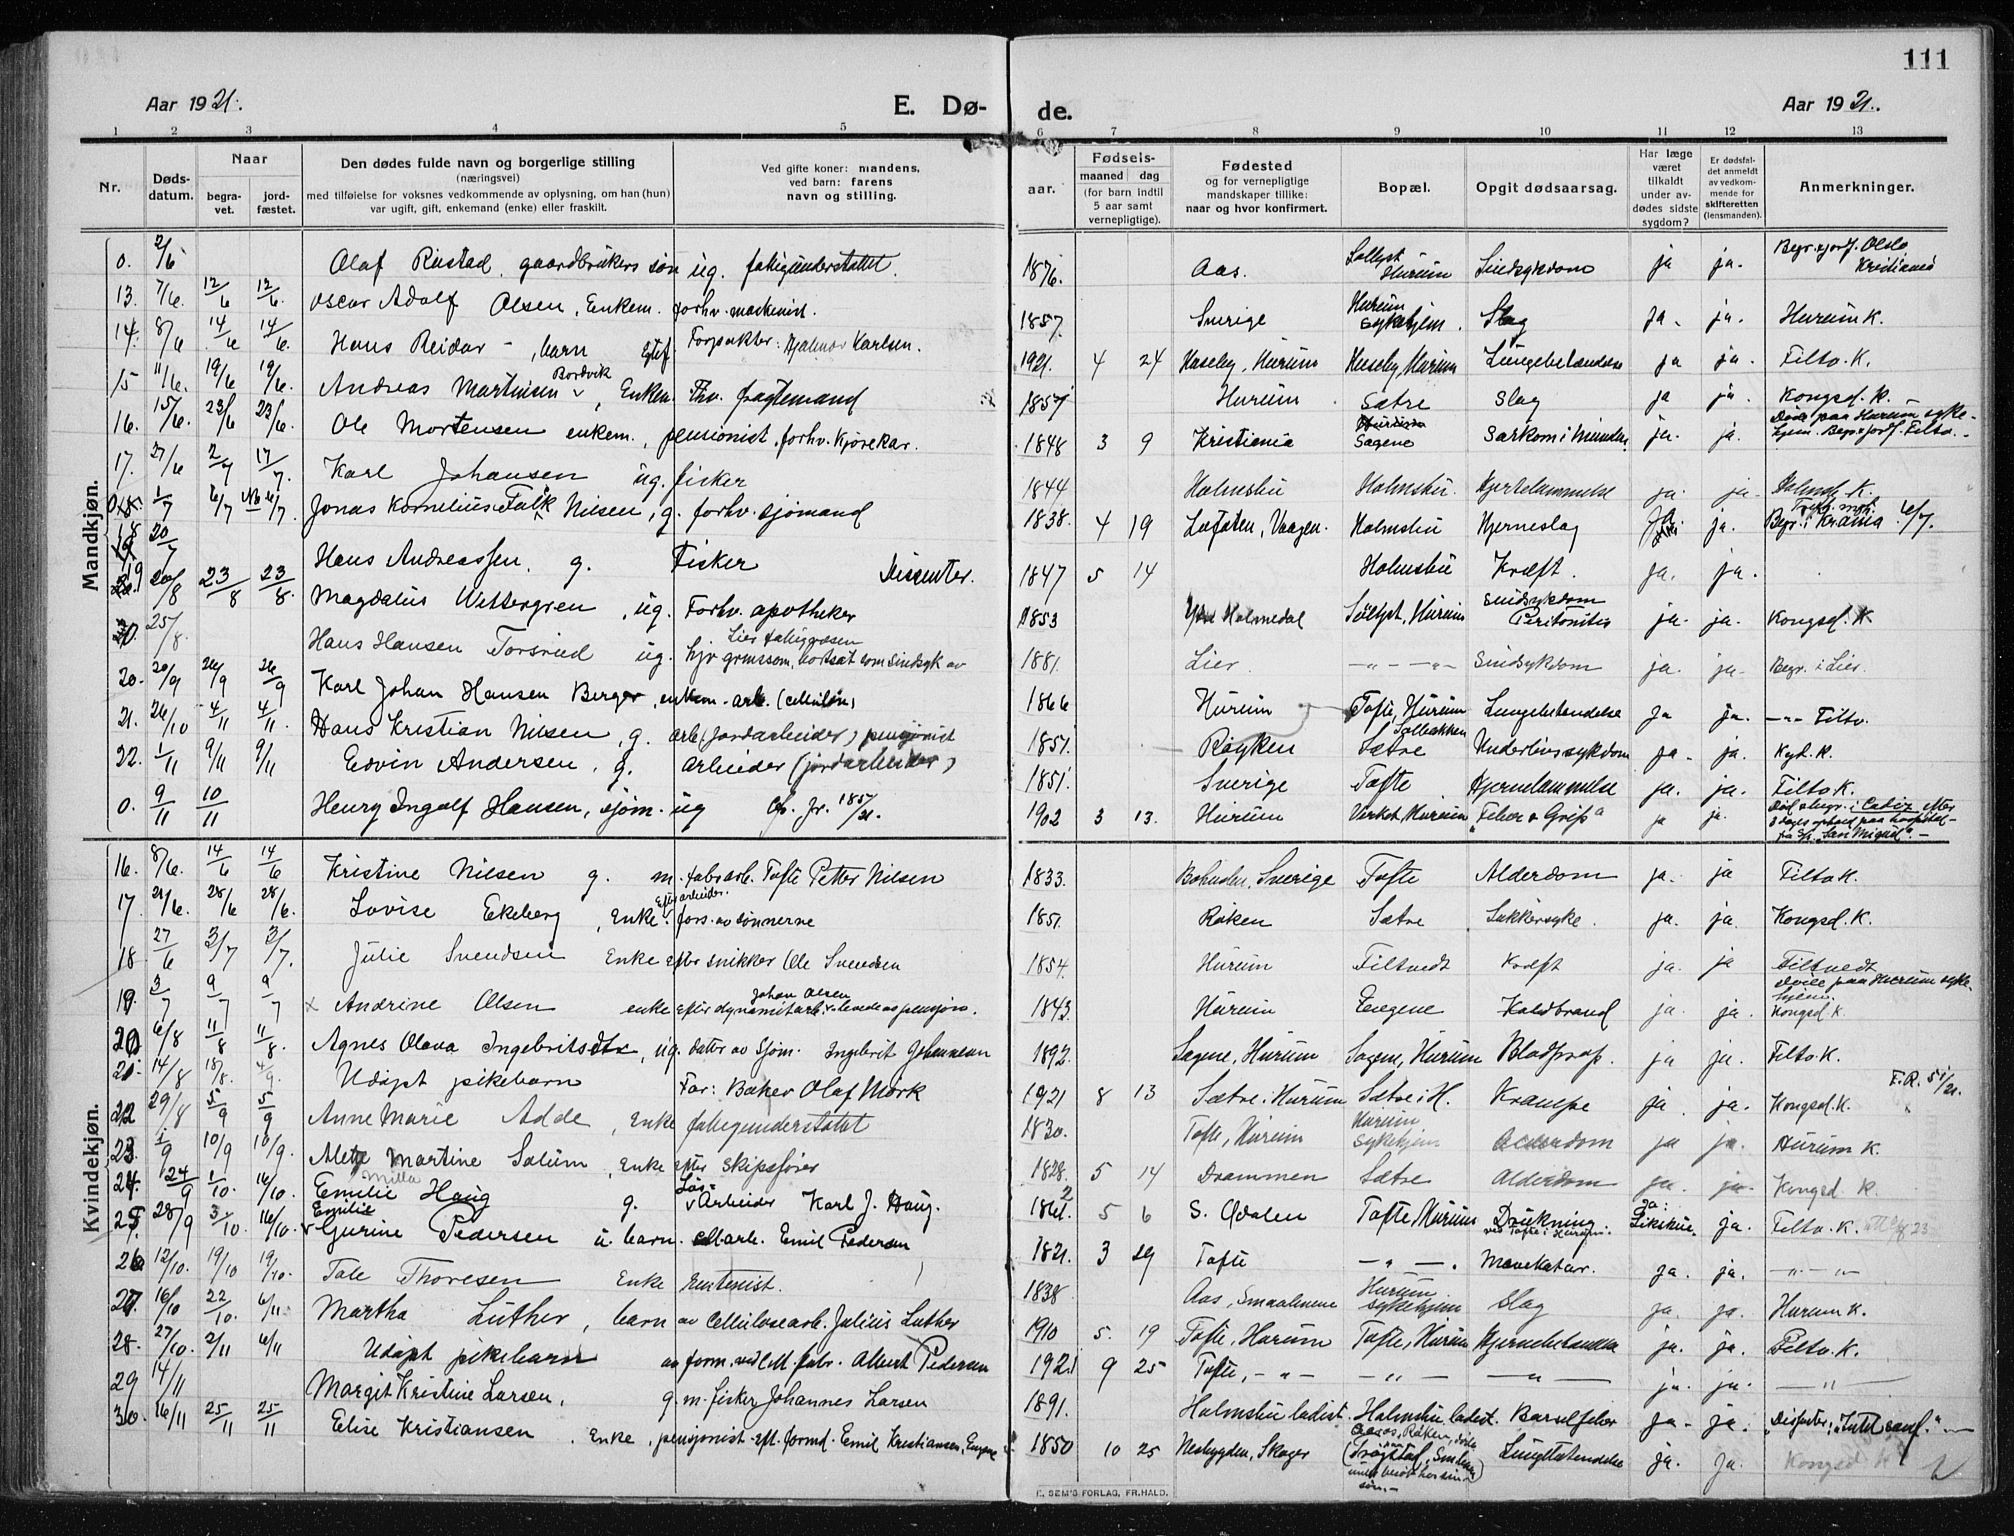 111
Aar 1921. E. Dø- de. Aar 1921.
1 2 3 4 5 6 7 8 9 10 11 12 13
Nr. Døds-datum. Naar begra-vet. jord-fæstet. Den dødes fulde navn og borgerlige stilling (næringsvei) med tilføielse for voksnes vedkommende av oplysning, om han (hun) var ugift, gift, enkemand (enke) eller fraskilt. Ved gifte koner: mandens, ved barn: farens navn og stilling. aar. Fødsels- maaned dag (for barn indtil 5 aar samt vernepligtige). Fødested og for vernepligtige mandskaper tillike: naar og hvor konfirmert. Bopæl. Opgit dødsaarsag. Har læge været tilkaldt under av-dødes sidste sygdom? Er dødsfal-det anmeldt av vedkom-mende for skifteretten (lensmanden). Anmerkninger.
Mandkjøn.
0. 2/6 Olaf Rustad, gaardbrukers søn ug. fattigunderstøttet. 1876. Aas. Sollyst Hurum Sindsykdom ja ja. Begr. & jordf. Oslo Kristiania
13. 7/6. 12/6 12/6. Oscar Adolf Olsen, Enkem. forhv. maskinist. 1857. Sverige Hurum sykehjem. Slag ja. ja. Hurum K.
14. 8/6 14/6 14/6. Hans Reidar -, barn Forpakter: Hjalmar Karlsen. 1921. 4 24 Haseby, Hurum Huseby, Hurum Lungebetændelse ja ja. Filtv. K.
15 11/6. 19/6 19/6. Andreas Martinsen Bordvik, Enkem. Fhv. fragtemand 1857 Hurum. Sætre Slag ja ja. Kongsd. K.
16. 15/6. 23/6 23/6. Ole Mortensen enkem., pensionist, forhv. Kjørekar. 1848 3 9 Kristiania Hurum Sagene Sarkom i Munden ja. ja. Død paa Hurum syke-hjem. Begr. & jordf. Filtv.
17. 27/6 2/7 17/7. Karl Johansen ug. fisker 1844 Holmsbu Holmsbu. Hjertelammelse ja. ja. Holmsb. K.
1/7 6/7 6/7. Jonas Kornelius Falk Nilsen, g. forhv. sjømand 1838. 4 19 Lofoten, Vaagen. Holmsbu Hjerneslag ja. Begr. i Krania 6/7.
18 20/7 Hans Andreassen, g. Fisker Dissenter. 1847 5 14 Holmsbu Kræft. ja. ja.
19 20/8 23/8 23/8. Magdalus Wettergren, ug. Forhv. apotheker 1853 Holmedal Sollyst, Hurum Sindsykdom Peritonitis ja. ja. Kongsd. K
25/8. Hans Hansen Torsrud ug. Lier fattigvæsen bortsat som sindsyk av 1881. Lier. -"- -"- Sindsykdom ja. ja. Begr. i Lier.
20. 20/9 26/9 26/9 Karl Johan Hansen Berger, enkem. arb. (cellulose) 1866 Hurum Tofte, Hurum Lungebetændelse ja ja. -"- Filtv.
21. 26/10 4/11 4/11. Hans Kristian Nilsen, g. arb. (jordarbeider) pensjonist 1857. Røyken Solbakken Sætre Underlivssykdom ja. ja. Kgd. K.
22. 1/11 9/11 9/11 Edvin Andersen, g. Arbeider (jordarbeider) 1851. Sverige Tofte Hjernelammelse ja. ja. Filtv. K.
0. 9/11 10/11 Henry Ingolf Hansen, sjøm. ug Cfr. jr. 1857/21. 1902 3 13. Hurum Virket Hurum "Feber & Grip" ja ja. Død & begr. i Cadiz efter 3 dages ophold paa hospital fra S/S "San Miguel".
Kvindekjøn.
16. 8/6. 14/6 14/6 Kristine Nilsen g. m. fabr. arb. Tofte Petter Nilsen 1833. Bohuslen, Sverige Tofte Alderdom ja. ja Filtv. K.
17. 21/6. 28/6 28/6. Lovise Ekeberg, Enke. Eft. arbeider. fors. av sønnerne 1851. Røken Sætre Sukkersyke. ja. ja. Kongsd. K.
18 27/6 3/7 3/7. Julie Svendsen Enke efter snikker Ole Svendsen 1854. Hurum Filtvedt Kræft ja. ja Filtvedt
19 3/7 9/7 9/7 x Andrine Olsen enke efter dynamitarb. Johan Olsen & levede av pensjon. 1843. Hurum Engene Koldbrand ja. ja. Døde paa Hurum syke-hjem. Kongsd. K.
20 6/8 11/8 11/8. Agnes Olava Ingebritsdtr, ug. datter av Sjøm. Ingebrit Johannesen 1892. Sagene, Hurum Sagene, Hurum Blodprop. ja ja. Filtv. K.
21. 14/8 18/8. 4/9. Udøpt pikebarn Far: Baker Olaf Mørk 1921 8 13 Sætre i Hurum Sætre i H. Krampe ja ja. Kongsd. K. F.R. 51/21.
22 29/8 5/9 5/9 Anne Marie Adde, Enke fattigunderstøttet 1830. Tofte, Hurum Hurum sykehjem Alderdom ja ja. Hurum K.
23. 1/9 10/9 10/9. Alet Martine Solum, Enke efter Skipsfører 1828. 5 14 Drammen Sætre Alderdom ja. ja. Kongsd. K.
24. 24/9 1/10. 16/10. Milla Emelie Haug g. Løs-Arbeider Karl J. Haug. 1862 5 6 S. Odalen Tofte Hurum Drukning ved Tofte i Hurum. ja: Likskue. ja. Filtv. K.
25. 28/9 3/10. 16/10. Emilie Gurine Pedersen u. barn. Cell. arb. Emil Pedersen 1921. 3 29 Tofte -"- Mavekatar. ja. ja. -"-
26 12/10. 19/10 19/10. Tale Thoresen Enke Rentenist. 1838 Aas, Smaalenene Hurum sykehjem Slag ja. ja. Hurum K.
27. 16/10 22/10. 6/11. Martha Luther, barn av Cellulosearb. Julius Luther 1910 5. 19 Tofte, Hurum Tofte, Hurum Hjernebetændelse ja. ja. Filtv. K.
28. 27/10. 2/11 6/11 Udøpt pikebarn av form. ved Cell. fabr. Albert Pedersen 1921 9 25 Tofte, -"- -"- -"- ja. ja. -"-
29 14/11 Margit Kristine Larsen, g. m. fisker Johannes Larsen 1891. Holmsbu ladist. Holmsbu ladest. Barselfeber ja. ja. Dissenter:
30. 16/11 25/11 25/11 Elise Kristiansen, Enke, pensjonist eft. formd. Emil Kristiansen, Engene 1850 10 25 Nesbygden, Skoger Lungebetændelse ja. ja. Kongsd K
E. SEM'S FORLAG, FR.HALD.